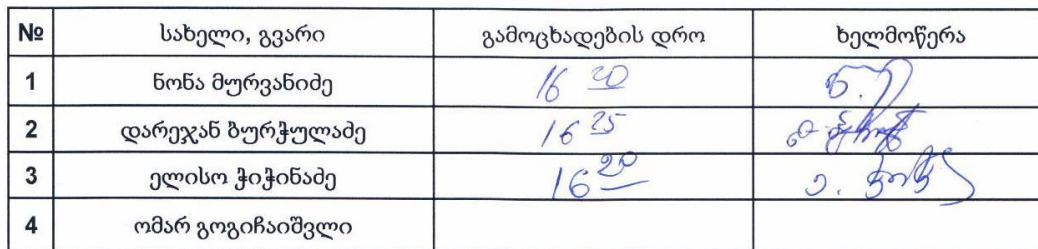 № სახელი, გვარი გამოცხადების დრო ხელმოწერა
1 ნონა მურვანიძე 16 20
2 დარეჯან ბურჭულაძე 16 25
3 ელისო ჭიჭინაძე 16 20
4 ომარ გოგიჩაიშვლი